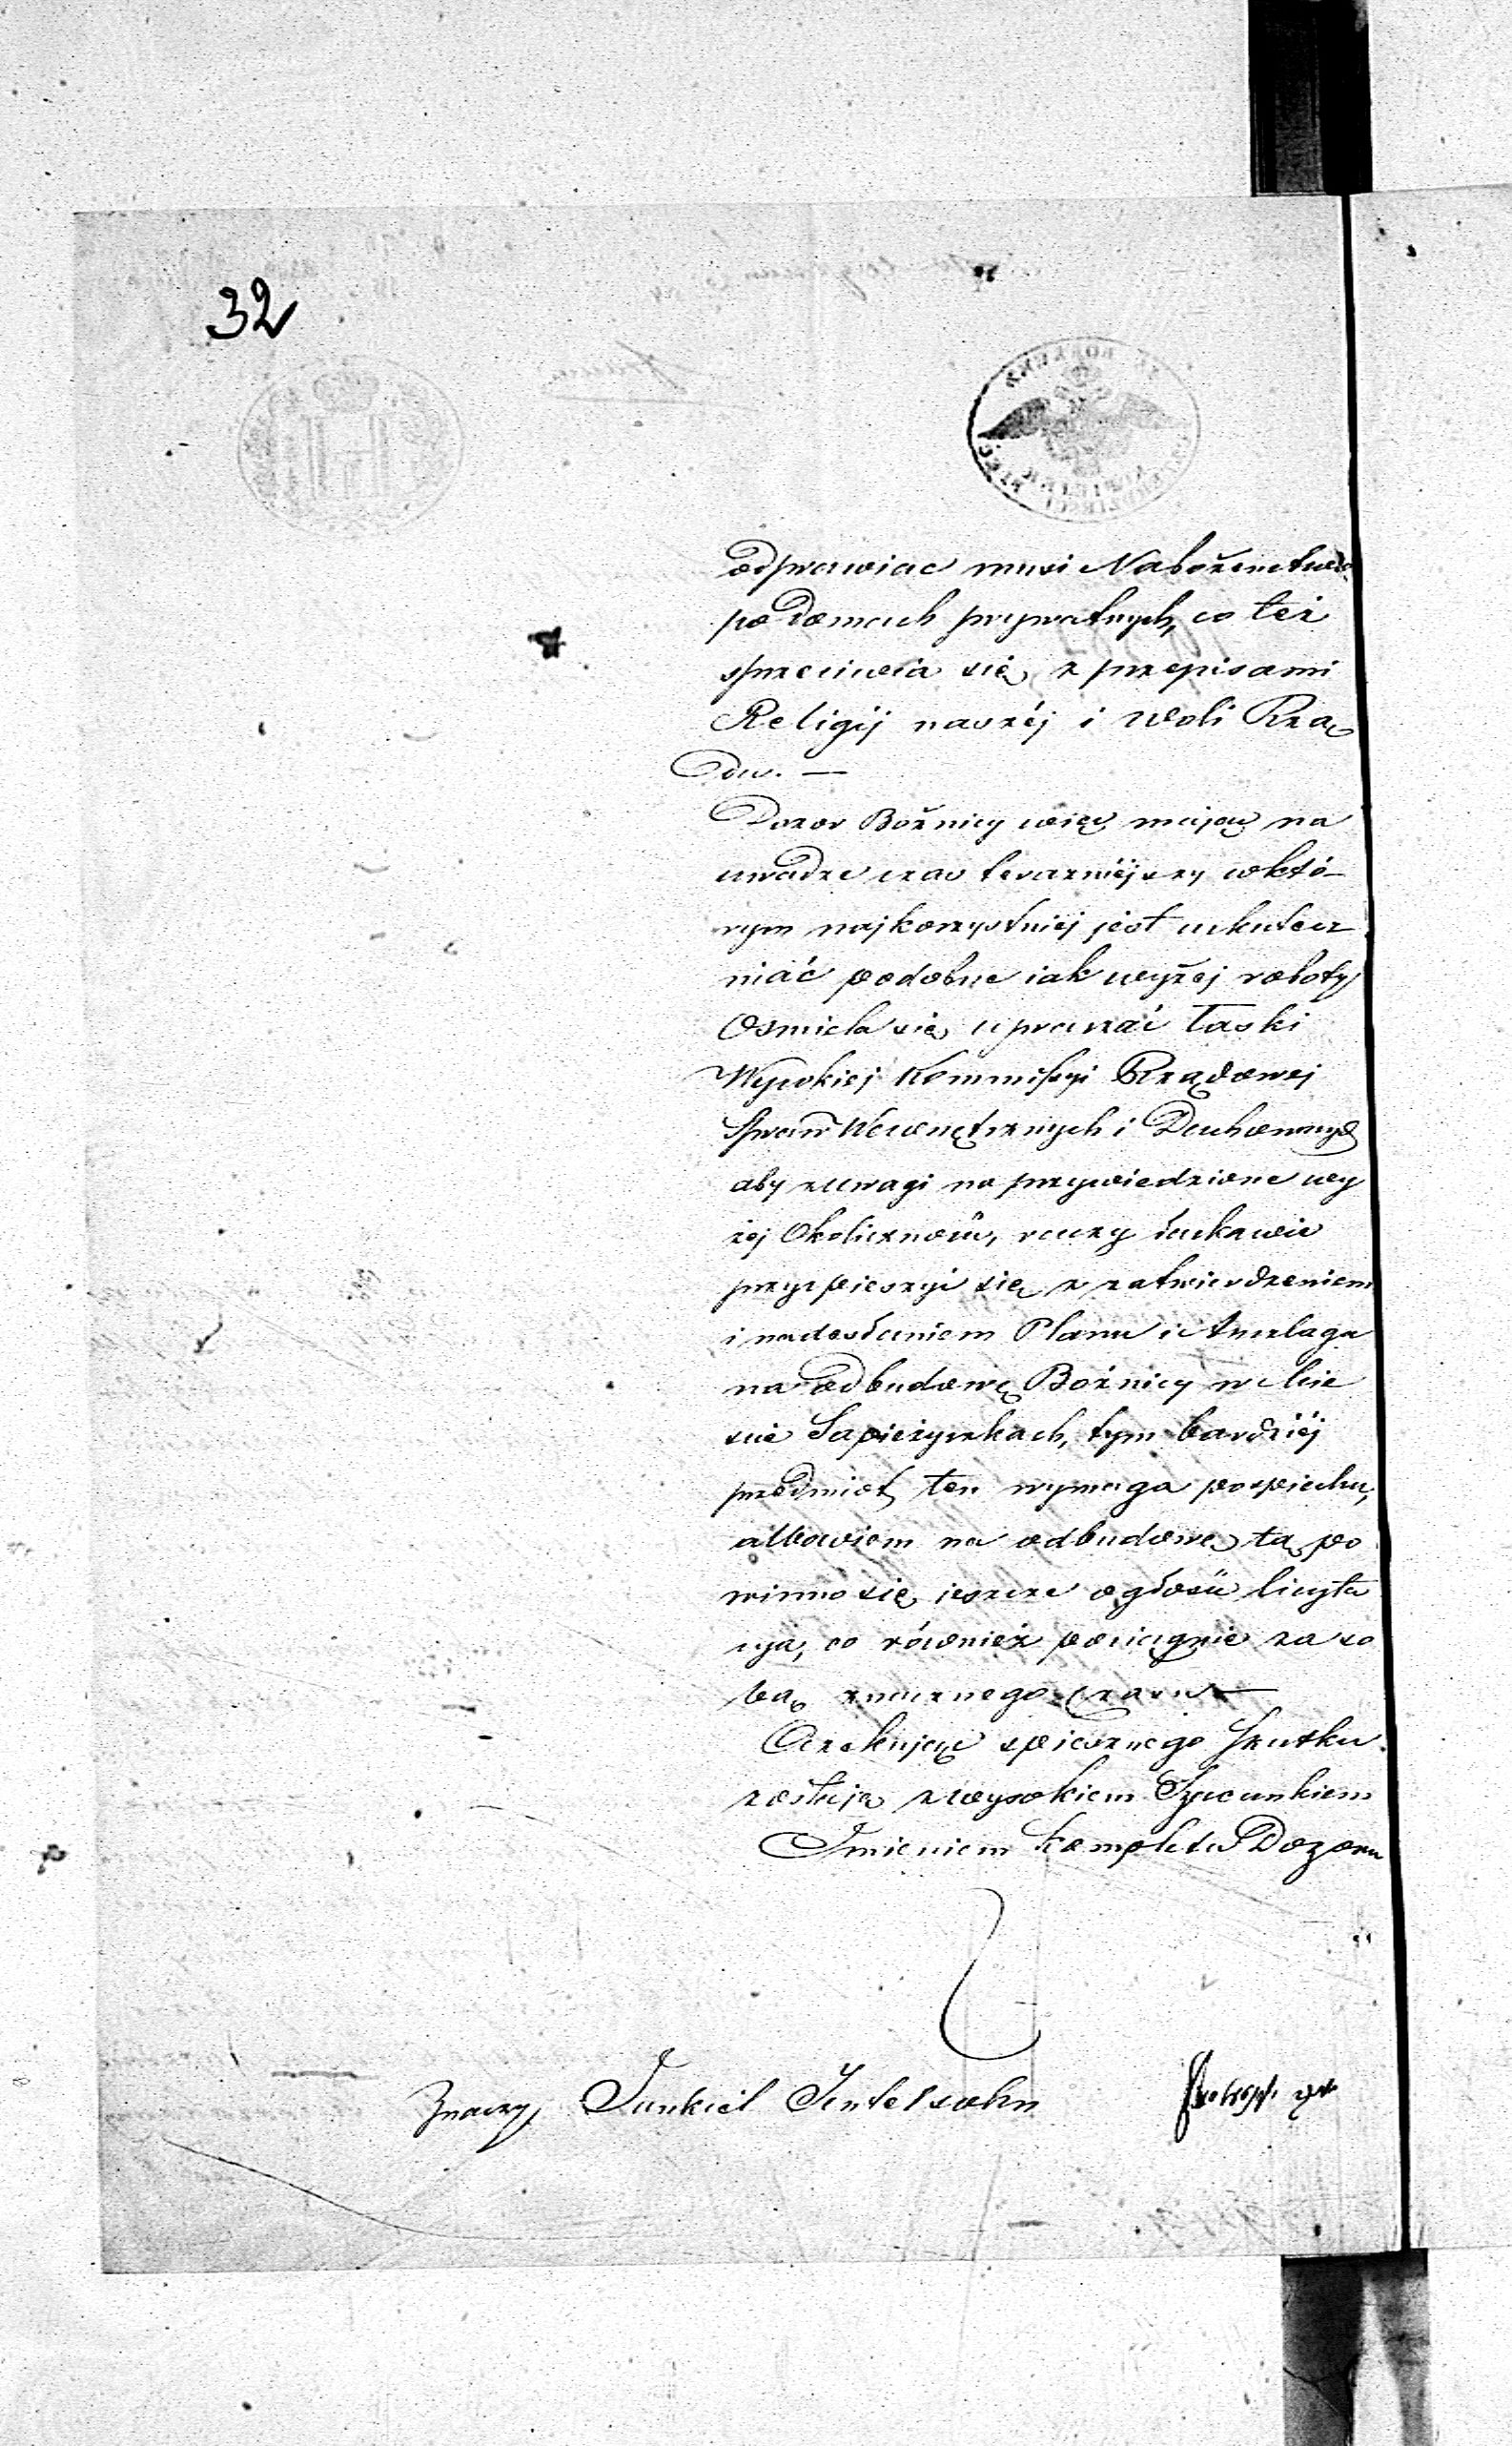 32
odprawiac musi Nabożenstwo
po domach prywatnych, co też
sprzeciwia się z przepisami
Religij naszéj i woli Rzą
du. —
Dozor Bożnicy więc mając na
uwadze czas terazniéjszy w któ-
rym najkorzystniej jest uskutecz
niać podobne iak wyżej roboty
Osmiela się upraszać Łaski
Wysokiej Kommissyi Rządowej
Spraw Wewnętrznych i Duchownych
aby z uwagi na przywiedzione wy
żej Okoliczności, raczy łaskawie
przyspieszyć się z zatwierdzeniem
i nadesłaniem Planu i Anszlagu
na odbudowę Bożnicy w Mie
scie Sapieżyszkach, tym bardziéj
przedmiot ten wymaga pospiechu,
albowiem na odbudowę tą po
winno się ieszcze ogłosić licyta
cyja, co również pociągnie za so
bą znacznego czasu —
Oczekując spiesznego skutku
zostaje z wysokiem Szacunkiem
Imieniem kompletu Dozoru
Znaczy Jankiel Jentelsohn